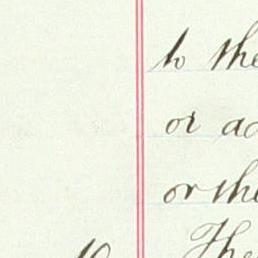 to the
or ad
or the
The